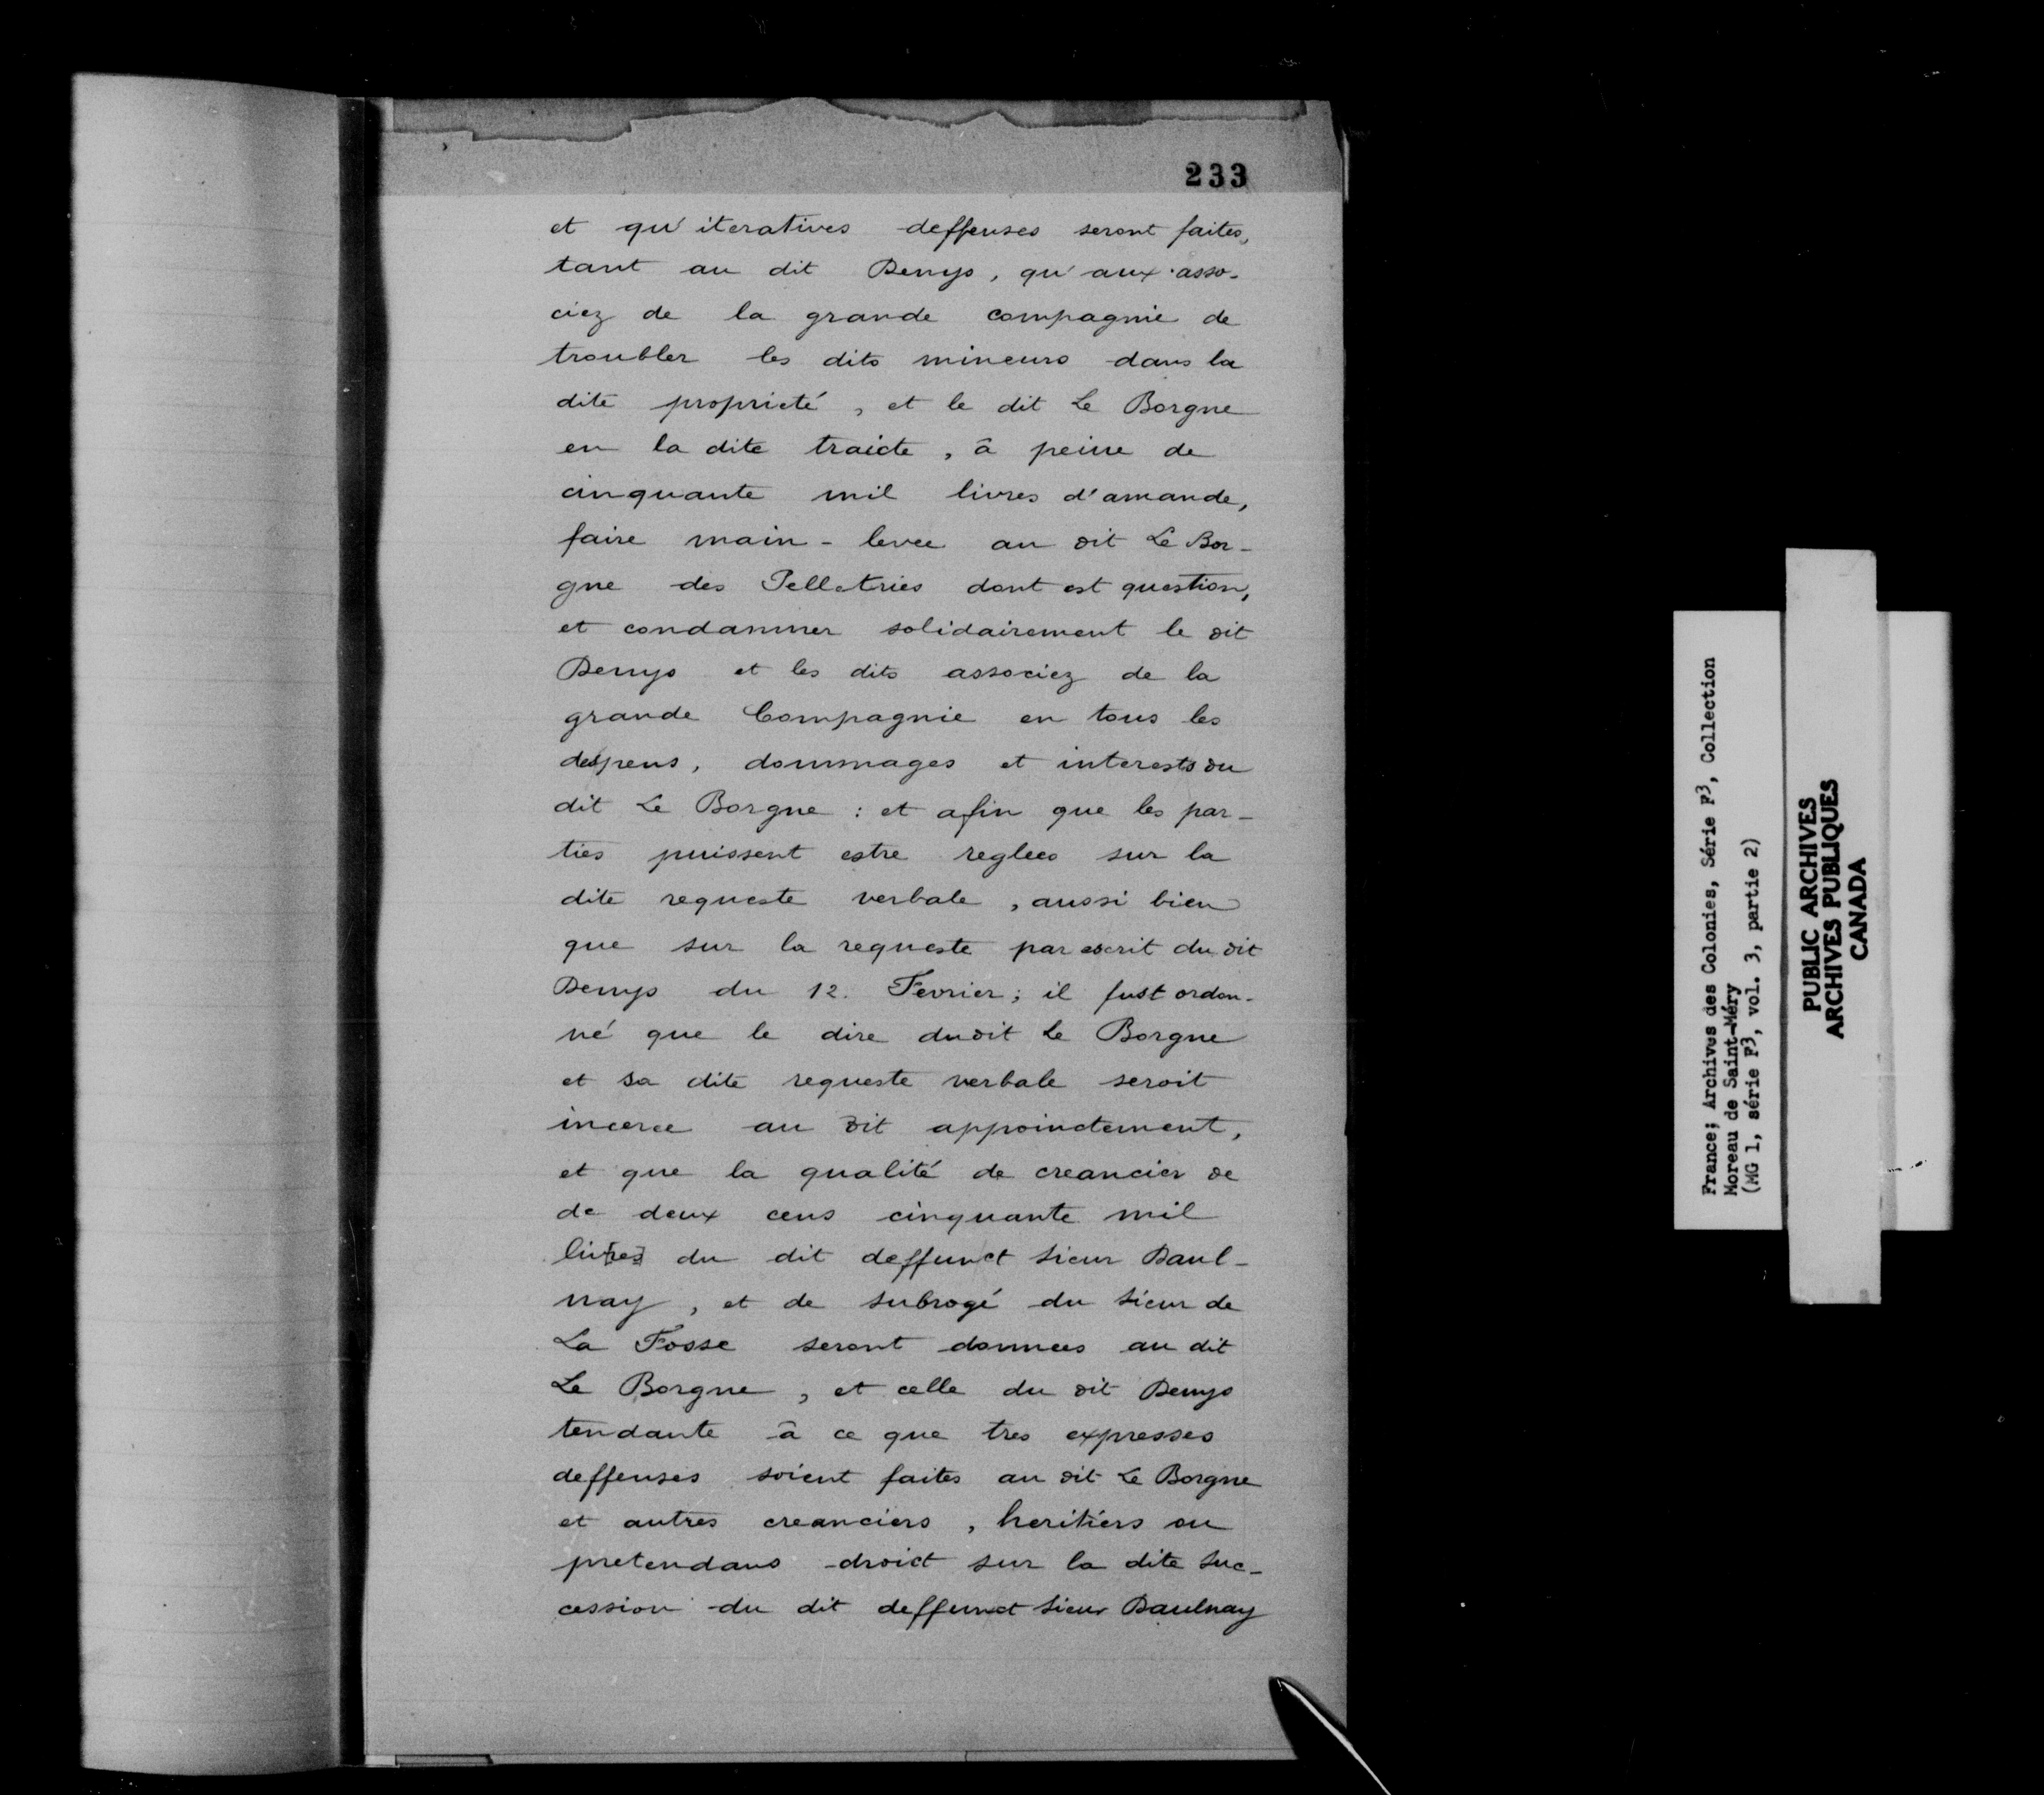 233
et qu'iteratives deffenses seront faites,
tant au dit Denys, qu'aux asso-
ciez de la grande compagnie de
troubler les dits mineurs dans la
dite proprieté, et le dit Le Borgne
en la dite traicte, à peine de
cinquante mil livres d'amande,
faire main-levee au dit Le Bor-
gne des Pelletries dont est question,
et condamner solidairement le dit
Denys et les dits associez de la
grande Compagnie en tous les
despens, dommages et interests du
dit Le Borgne : et afin que les par-
ties puissent estre reglees sur la
dite requeste verbale, aussi bien
que sur la requeste par escrit du dit
Denys du 12. Fevrier; il fust ordon-
né que le dire dudit Le Borgne
et sa dite requeste verbale seroit
inceree au dit appoinctement,
et que la qualité de creancier de
de deux cens cinquante mil
livres du dit deffunct sieur Daul-
nay, et de subrogé du sieur de
La Fosse seront donnees au dit
Le Borgne, et celle du dit Denys
tendante à ce que tres expresses
deffenses soient faites au dit Le Borgne
et autres creanciers, heritiers ou
pretendans droict sur la dite suc-
cession du dit deffunct sieur Daulnay
France; Archives des Colonies, Série F3, Collection
Moreau de Saint-Méry
(MG 1, série F3, vol. 3, partie 2)
PUBLIC ARCHIVES
ARCHIVES PUBLIQUES
CANADA